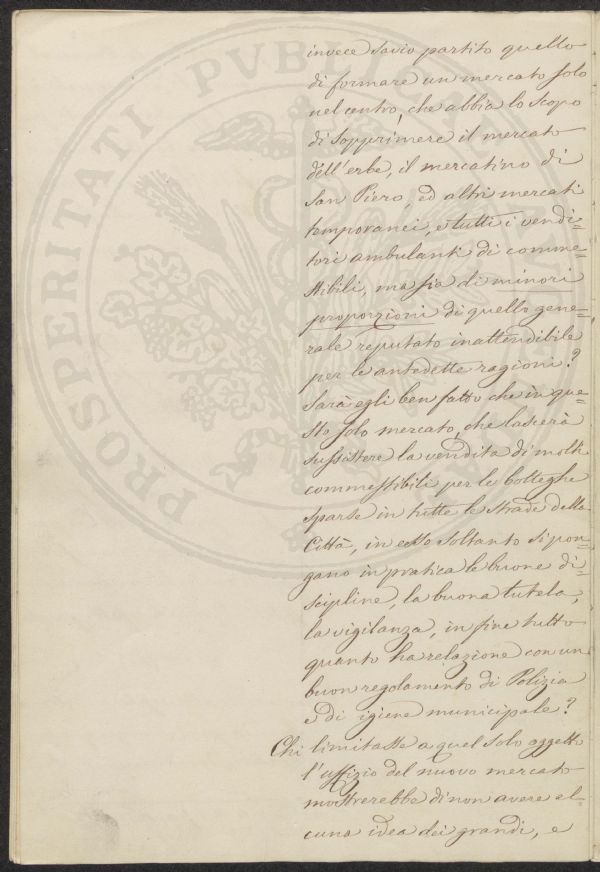 invece savio partito quello
di formare un mercato solo
nel centro, che abbia lo scopo
di sopprimere il mercato
dell'erbe, il mercatino di
San Piero, ed altri mercati
temporanei, e tutti i vendi=
tori ambulanti di comme=
stibili, ma sia di minori
proporzioni di quello gene=
rale reputato inattendibile
per le antedette ragioni?
Sarà egli ben fatto che in que=
sto solo mercato, che lascerà
sussistere la vendita di molti
commestibili per le botteghe
sparse in tutte le strade della
Città, in esso soltanto si pon=
gano in pratica le buone di=
scipline, la buona tutela,
la vigilanza, in fine tutto
quanto ha relazione con un
buon regolamento di Polizia
e di igiene municipale?
Chi limitasse a quel solo oggetto
l'uffizio del nuovo mercato
mostrerebbe di non avere al=
cuna idea dei grandi, e
PROSPERITATI PVBLI